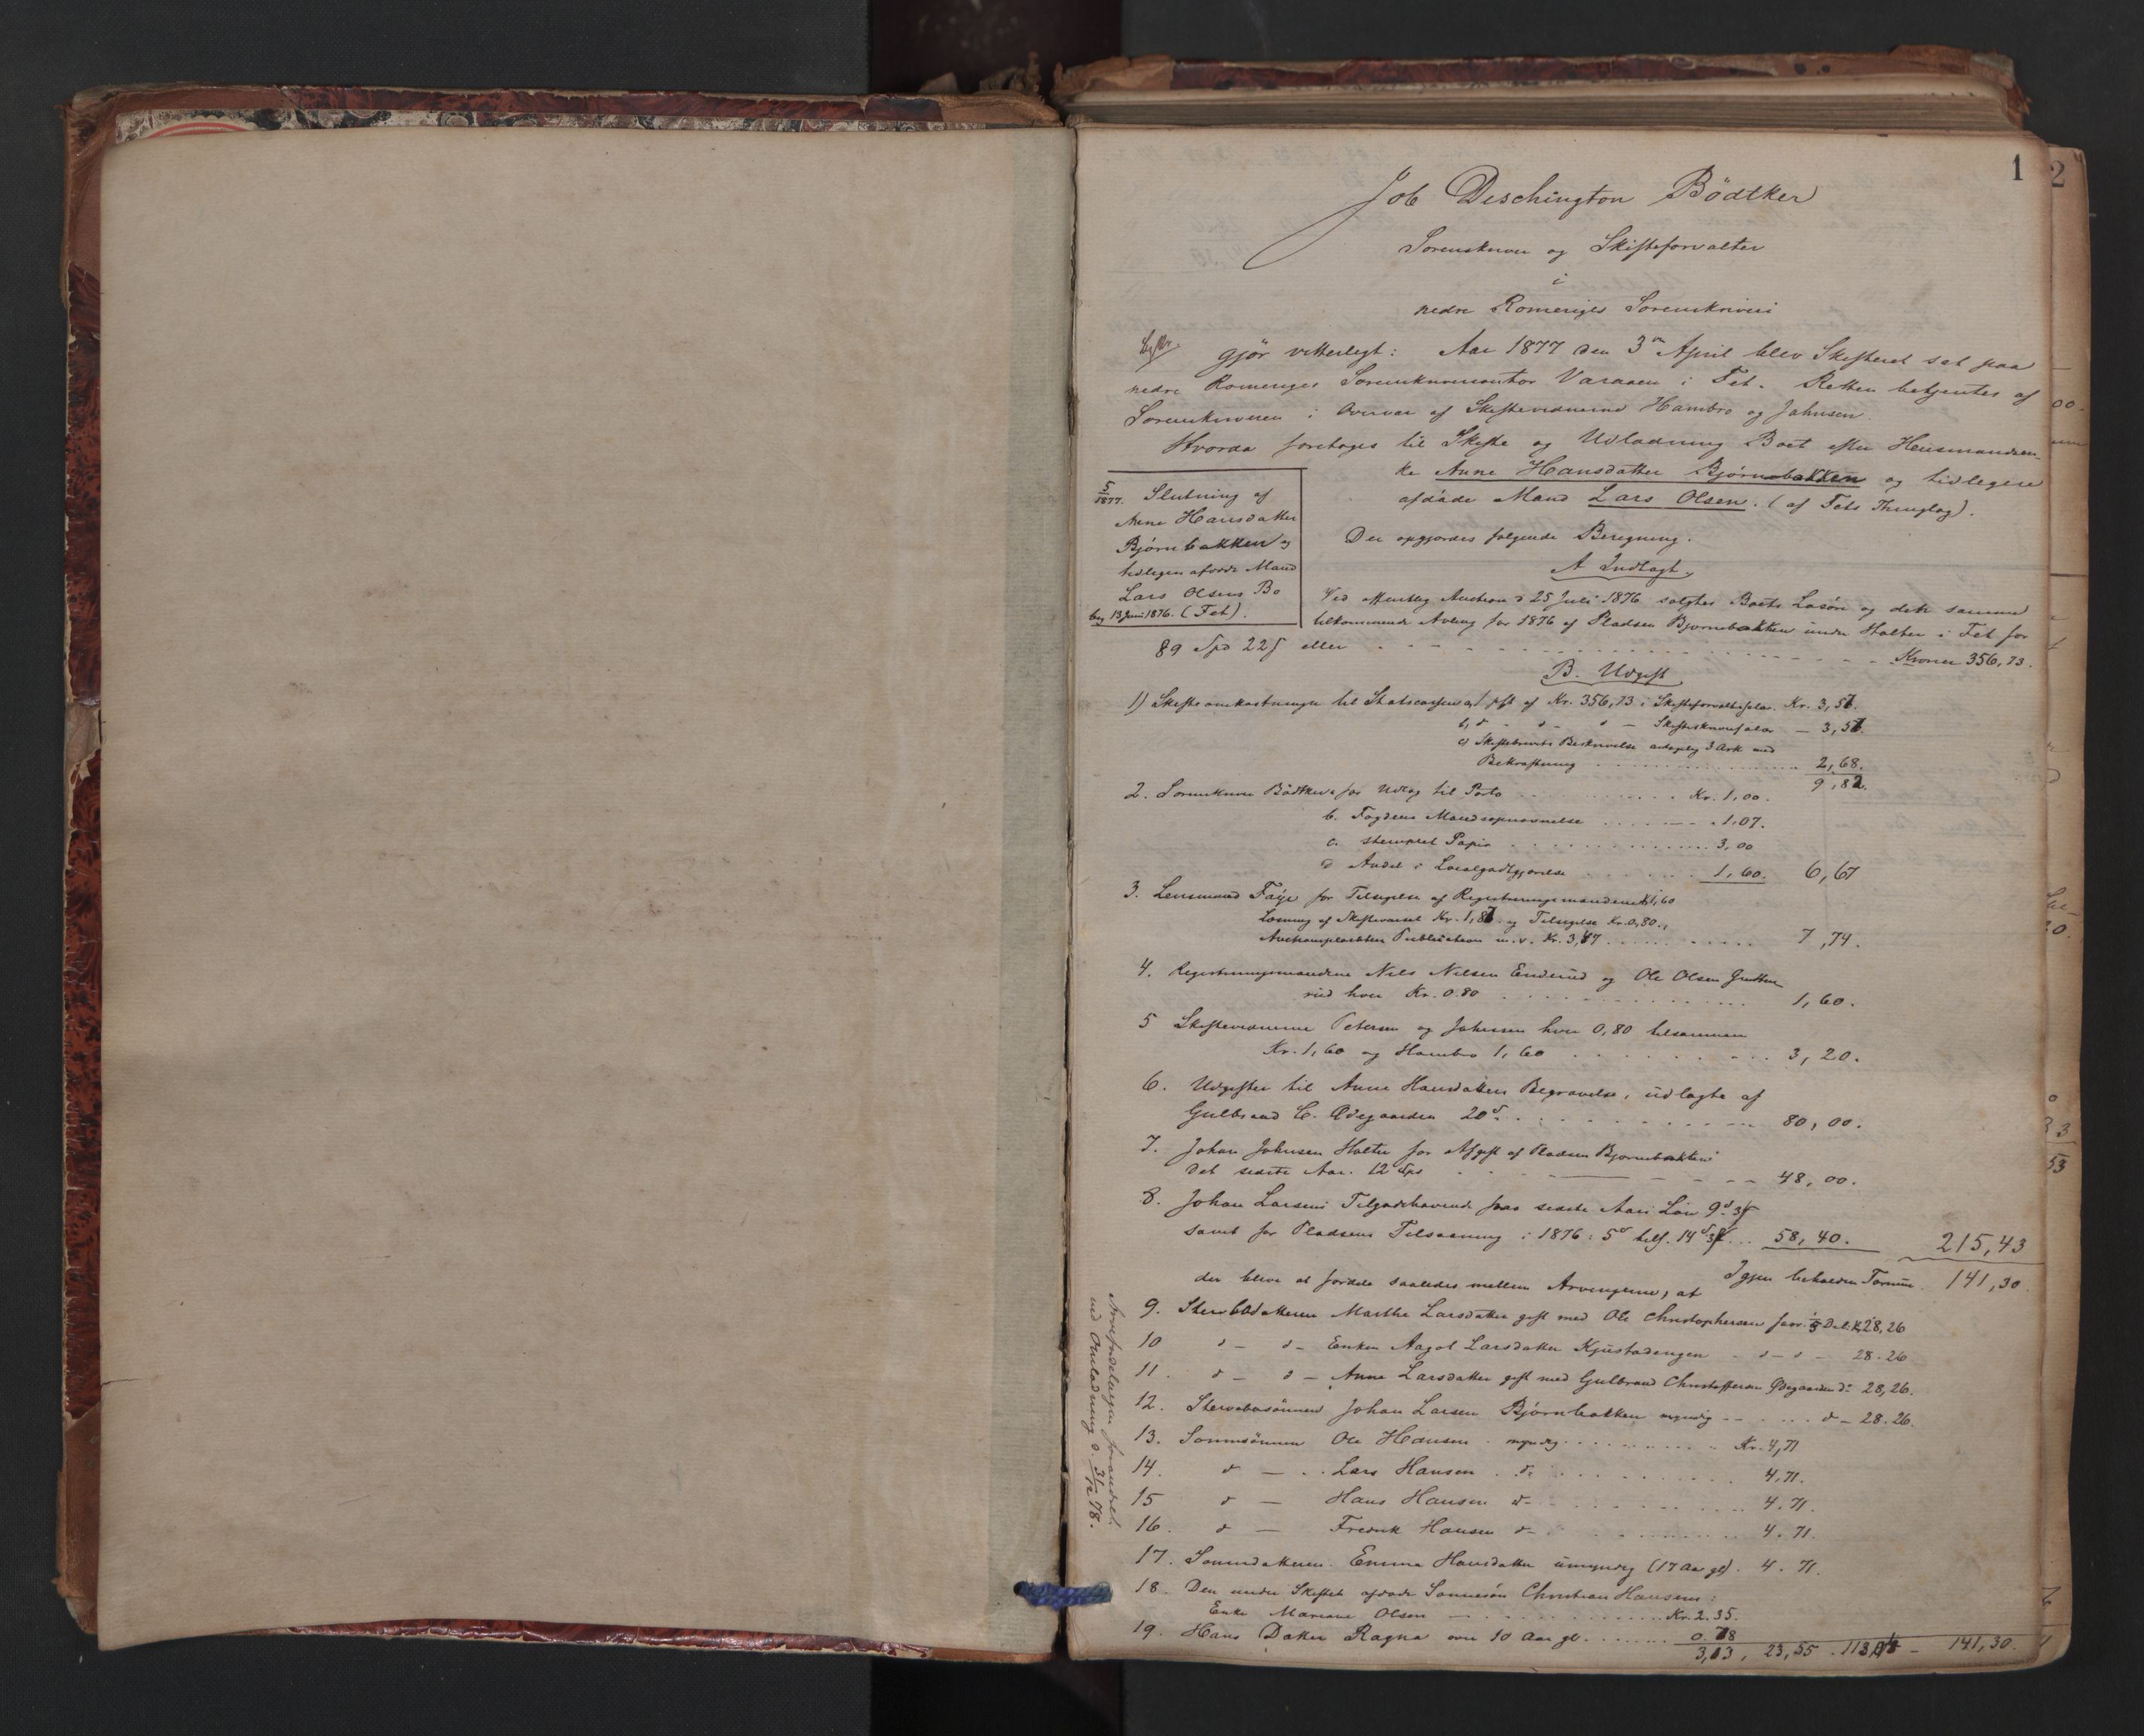 1
2
Job Deschington Bödtker
Sorenskriver og Skifteforvalter
i
nedre Romeriges Sorenskriveri
gjör vitterligt: Aar 1877 den 3 April blev Skifteret sat paa
nedre Romeriges Sorenskrivercontor Varaaen i Fet. Retten betjentes af
Sorenskriveren i Overvær af Skiftevidnerne Hambro og Johnsen.
Hvorda foretoges til Skifte og Udlodning Boet efter Huusmandsen-
ke Anne Hansdatter Bjørnebakken og tidligere
afdöde Mand Lars Olsen. (af Fets Thinglag).
5/1877. Slutning af
Anne Hansdatter
Bjørnbakken og
tidligere afdöde Mand
Lars Olsens Bo
beg 13 Juni 1876. (Fet).
Der opgjordes følgende Beregning.
A Indtægt
Ved offentlig Auction d 25 Juli 1876 solgtes Boets Løsöre og dets samme
tilkommende Avling for 1876 af Pladsen Bjørnebakken under Holter i Fet for
89 Spd 22 ß eller Kroner 356,73.
B. Udgift
1) Skifteomkostninger til Statscassen a, 1 pCt af Kr. 356,73 i Skifteforvaltersalær Kr. 3,57.
b, d - d - d - Skifteskriversalær - 3,57.
c) Skiftebrevets Beskrivelse 3 Ark med
Bekræftning 2,68.
9,82.
2. Sorenskriver Bödtker a for Udlæg til Porto Kr. 1,00.
b. Fogdens Mandsopnævnelse 1,07.
c. stemplet Papir 3,00
d Andel i Localgodtgjørelse 1,60. 6,67
3. Lensmand Faye for Tilsigelse af Registreringsmændene Kr 1,60
Løsning af Skiftevarsel Kr. 1,87 og Tilsigelse Kr. 0,80.,
Auctionsplacaters Publication m.v. Kr. 3,47 7,74.
4. Registreringsmændene Nils Nilsen Enderud og Ole Olsen
rud hver Kr. 0.80 1,60.
5 Skiftevidnerne Petersen og Johnsen hver 0,80 tilsammen
Kr. 1,60 og Hambro 1,60 3,20.
6. Udgifter til Anne Hansdatters Begravelse, udlagte af
Gulbrand C. Ødegaarden 20 d. 80,00.
7. Johan Johnsen Holter for Afgift af Pladsen Bjørnebakken
det sidste Aar. 12 Spd 48,00.
8. Johan Larsens Tilgodehavende for sidste Aars Løn 9 d. 3 ß
samt for Pladsens Tilsaaning i 1876: 5 d tils. 14 d 3 ß 58,40. 215,43
Igjen beholden Formue 141,30
der bliver at fordele saaledes mellem Arvingerne, at
9. Stervbodatteren Marthe Larsdatter gift med Ole Christophersen faar 1/5 Del: Kr 28,26
10 d - d - Enken Aagot Larsdatter Kjustadengen - d - d - 28.26
11. d - d - Anne Larsdatter gift med Gulbrand Christoffersen Ødegaarden do 28,26.
12. Stervbosönnen Johan Larsen Bjørnbakken myndig d - 28.26.
13. Sönnesönnen Ole Hansen myndig Kr. 4,71
14. d - Lars Hansen d. 4.71.
15 d - Hans Hansen d - 4.71.
16. d - Fredrik Hansen d - 4.71.
17. Sönnedatteren Emma Hansdatter umyndig (17 Aar gl). 4.71.
18. Den under Skiftet afdöde Sönnesön Christian Hansens:
Enke Mariane Olsen Kr. 2.35.
19. Hans Datter Ragna over 10 Aar gl. 0.78
3,13, 23,55. 113, - 141,30.
Arvefordelingen forandret
ved Omlodning d. 31/12 78.